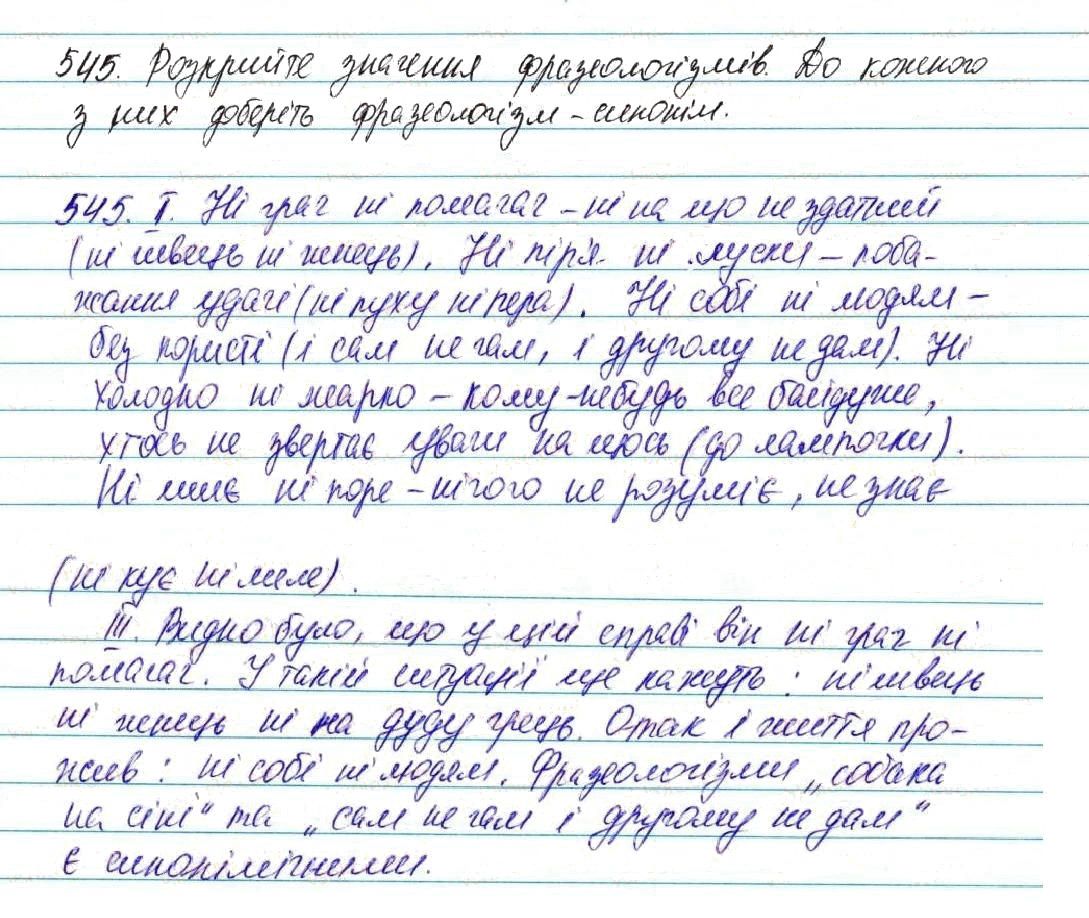 545. Розкрийте значення фразеологізмів. До кожного
з них доберіть фразеологізм-синонім.
545. I. Ні грач ні помагач – ні на що не здатний
(ні швець ні жнець). Ні пір'я ні луски – поба-
жання удачі (ні пуху ні пера). Ні собі ні людям –
без користі (і сам не гам, і другому не дам). Ні
холодно ні жарко – кому-небудь все байдуже,
хтось не звертає уваги на щось (до лампочки).
Ні меле ні поре – нічого не розуміє, не знає
(ні кує ні меле).
III. Видно було, що у цій справі він ні грач ні
помагач. У такій ситуації ще кажуть: ні швець
ні жнець ні на дуду грець. Отак і життя про-
жив: ні собі ні людям. Фразеологізми „собака
на сіні“ та „сам не гам і другому не дам“
є синонімічними.